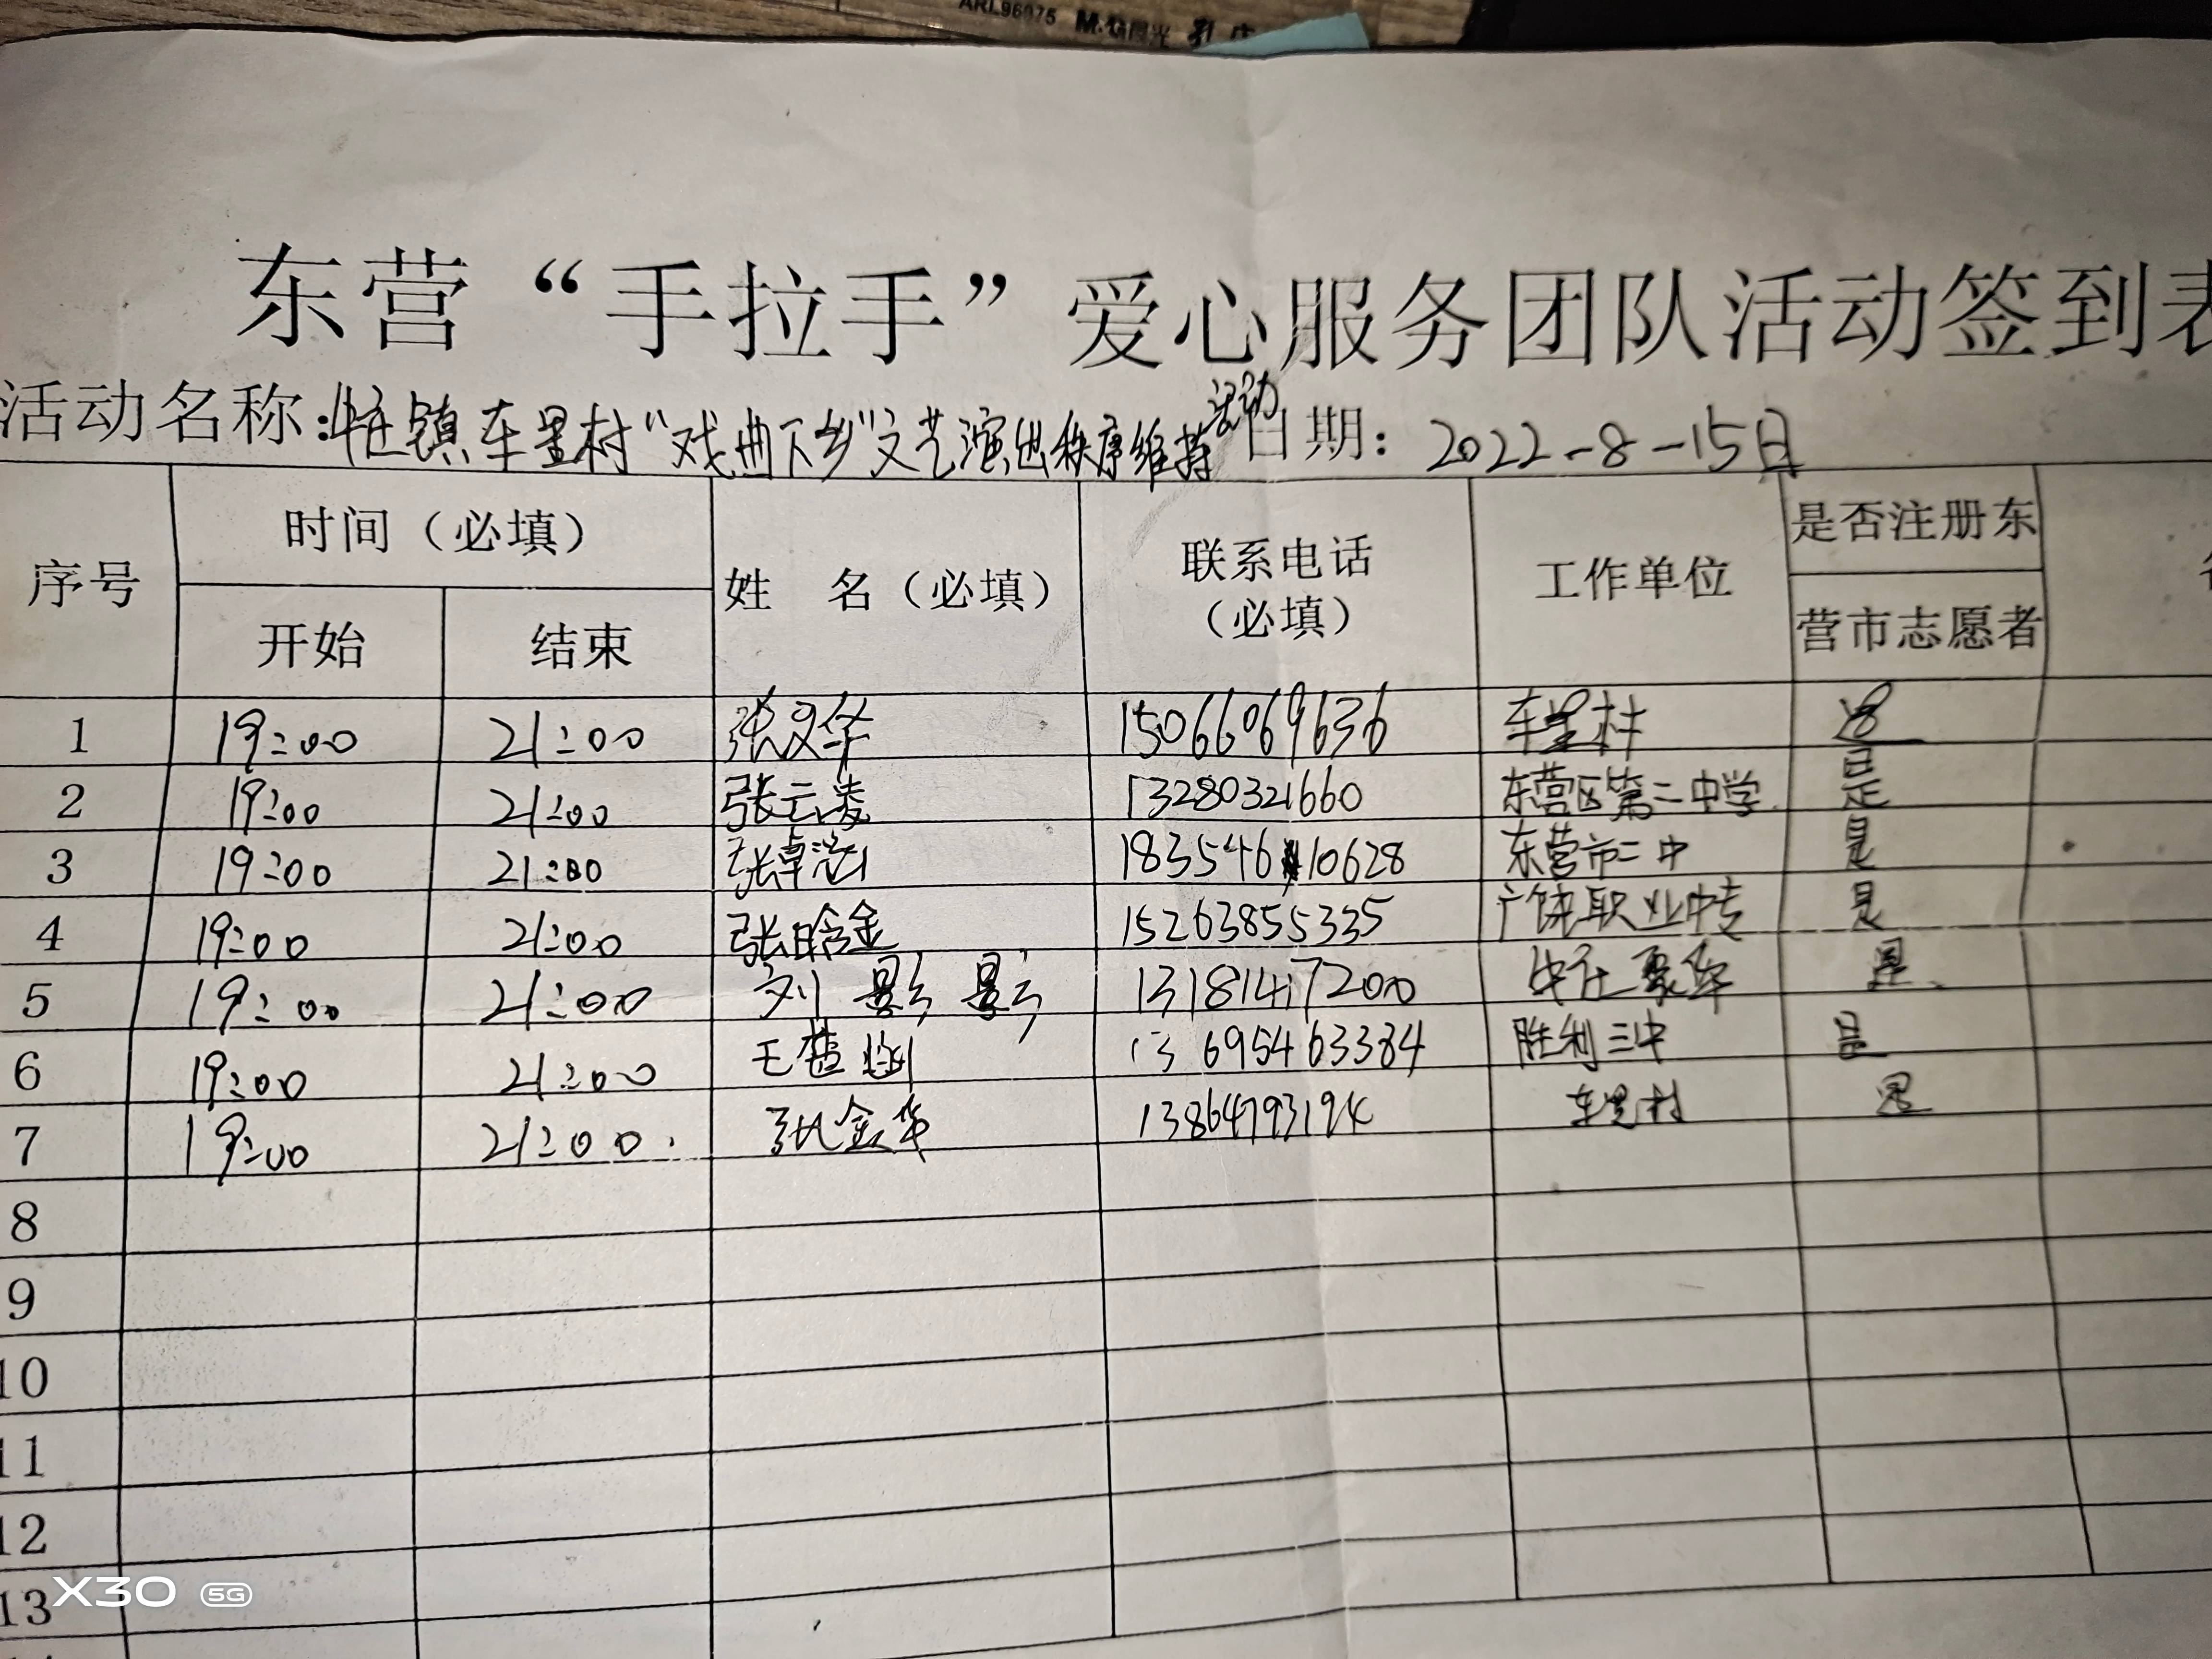 ARL96075 M&G晨光
东营“手拉手”爱心服务团队活动签到表
活动名称:牛庄镇车里村“戏曲下乡”文艺演出秩序维持活动 日期：2022-8-15日
序号 时间（必填） 姓 名（必填） 联系电话（必填） 工作单位 是否注册东营市志愿者
开始 结束
1 19:00 21:00 张义华 15066069636 车里村 是
2 19:00 21:00 张云凌 13280321660 东营区第二中学 是
3 19:00 21:00 张卓 18354610628 东营市二中 是
4 19:00 21:00 张晗金 15263855335 广饶职业中专 是
5 19:00 21:00 刘影影 13181417200 牛庄 是
6 19:00 21:00 王楚 13695463384 胜利三中 是
7 19:00 21:00 张金华 13864793194 车里村 是
8
9
10
11
12
13
X30 5G